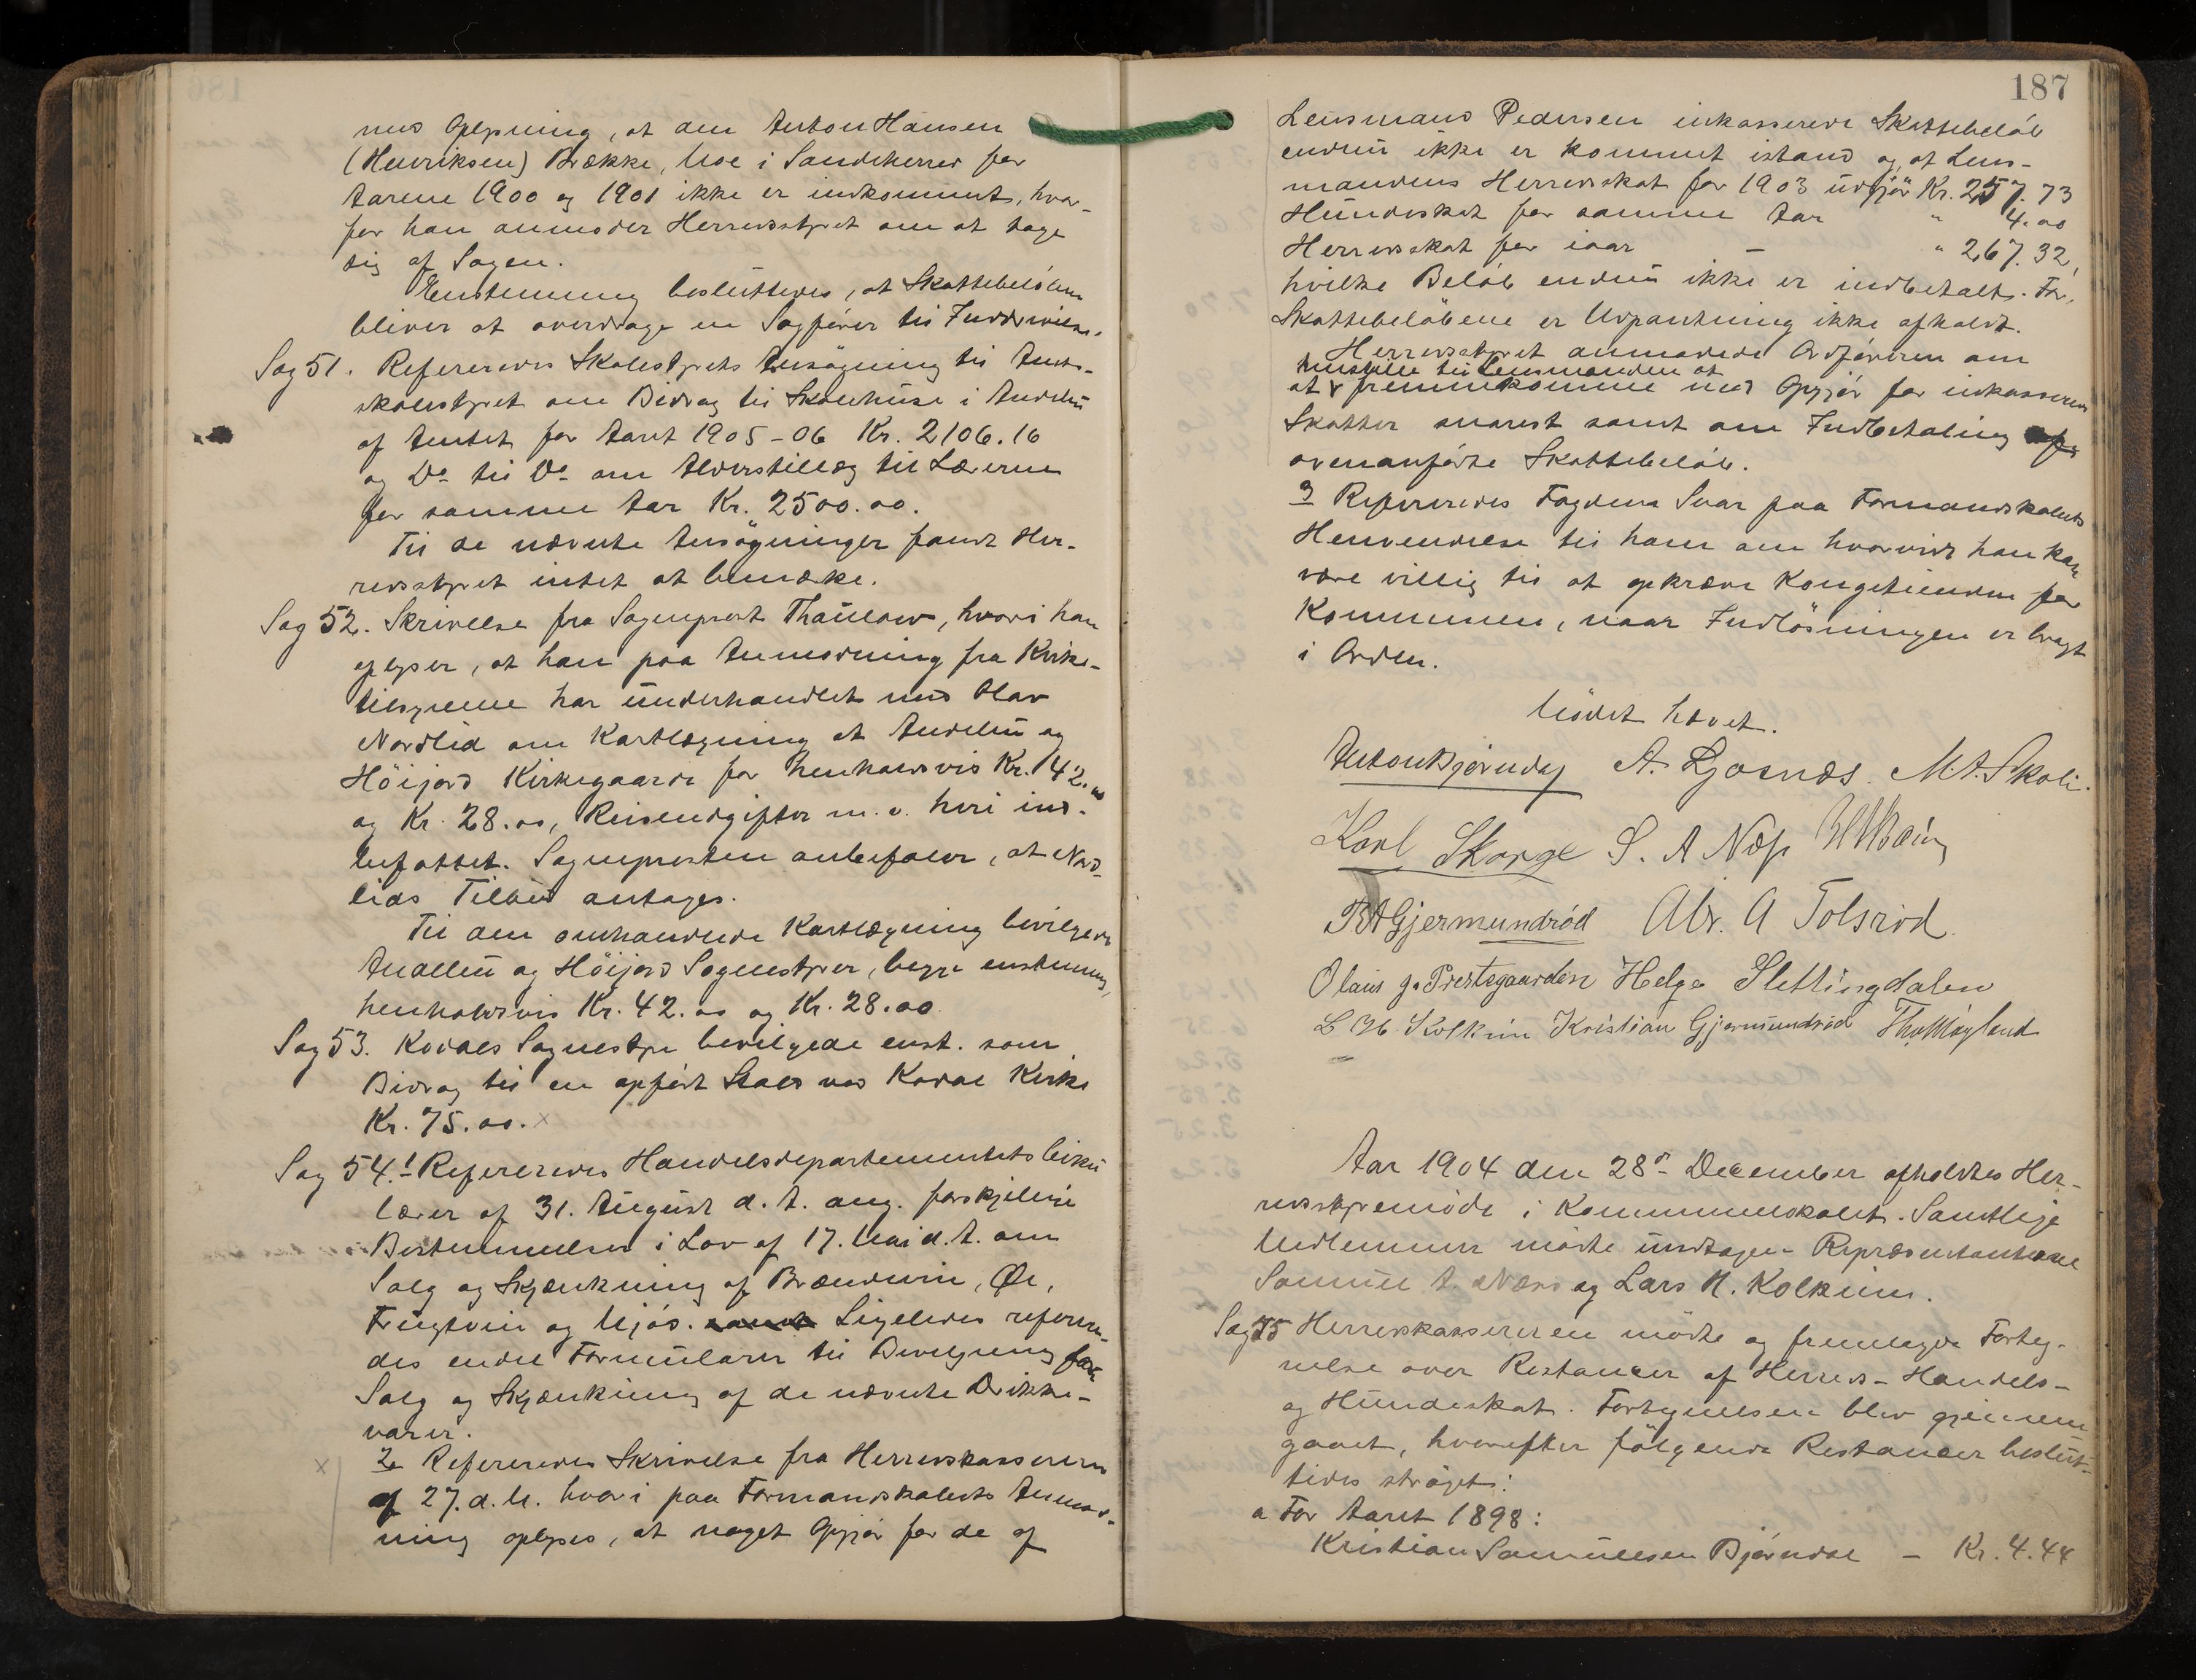 med Oplysning, at den Anton Hansen
(Henriksen) Brække, Moe i Sandeherred for
Aarene 1900 og 1901 ikke er indkommet, hvor-
for han anmoder Herredsstyret om at tage
sig af Sagen.
Enstemmig besluttedes, at Skattebeløbene
bliver at overdrage en Sagfører til Inddrivelse.
Sag 51. Refereredes Skolestyrets Ansøgning til Amts-
skolestyret om Bidrag til Skolehuse i Andebu
af Amtet for Aaret 1905-06 Kr. 2106.16
og Do til Do om Alderstillæg til Lærerne
for samme Aar Kr. 2500.00.
Til de nævnte Ansøgninger fandt Her-
redsstyret intet at bemærke.
Sag 52. Skrivelse fra Sogneprest Thaulow, hvori han
oplyser, at han paa Anmodning fra Kirke-
tilsynene har underhandlet med Olav
Nordlid om Kartlægning at Andebu og
Höijord Kirkegaarde for henholdsvis Kr. 42.00
og Kr. 28.00, Reiseudgifter m. v. heri ind-
befattet. Sognepresten anbefaler, at Nord-
lids Tilbud antages.
Til den omhandlede Kartlægning bevilgede
Andebu og Höijord Sognestyrer, begge enstemmig,
henholdsvis Kr. 42.00 og Kr. 28.00.
Sag 53. Kodals Sognestyre bevilgede enst. som
Bidrag til en opført Stald ved Kodal Kirke
Kr. 75.00. x
Sag 54. 1 Refereredes Handelsdepartementets Cirku-
lærer af 31. August d. A. ang. forskjellige
Bestemmelser i Lov af 17. Mai d. A. om
Salg og Skjænkning af Brændevin, Øl,
Frugtvin og Mjød. samt Ligeledes referere-
des endel Formularer til Bevilgning for
Salg og Skjænkning af de nævnte Drikke-
varer.
x 2 Refereredes Skrivelse fra Herredskassereren
af 27. d. M. hvori paa Formandskabets Anmod-
ning oplyses, at noget Opgjør for de af
187
Lensmand Pedersen inkasserede Skattebeløb
endnu ikke er kommet istand og at Lens-
mandens Herredsskat for 1903 udgjör Kr. 257.73
Hundeskat for samme Aar " 4.00
Herredsskat for iaar — " 267.32,
hvilke Beløb endnu ikke er indbetalt. For
Skattebeløbene er Udpantning ikke afholdt.
Herredsstyret anmodede Ordføreren om
henstille til Lensmanden at
at fremkomme med Opgjør for inkasserede
Skatter snarest samt om Indbetaling af
ovenanførte Skattebeløb.
3 Refereredes Fogdens Svar paa Formandskabets
Henvendelse til ham om hvorvidt han kan
være villig til at opkræve Kongetienden for
Kommunen, naar Indløsningen er bragt
i Orden.
Mödet hævet.
Anton Bjørndal A. Gjosnæs. M. A. Skoli.
Karl Skorge S. A Næs
B A Gjermundrød Abr. A Tolsrød.
Olaus J. Prestegaarden Helge Slettingdalen
L H Kolkinn Kristian Gjermundrød Th. Møyland
Aar 1904 den 28de December afholdtes Her-
redsstyremöde i Kommunelokalet. Samtlige
Medlemmer mødte undtagen Repræsentanterne
Samuel A Næss og Lars H. Kolkinn.
Sag 55 Herredskassereren mødte og fremlagde Forteg-
nelse over Restancer af Herreds- Handels-
og Hundeskat. Fortegnelsen blev gjennem-
gaaet, hvorefter fölgende Restancer beslut-
tedes strøget:
a For Aaret 1898:
Kristian Samuelsen Bjørndal — Kr. 4.44